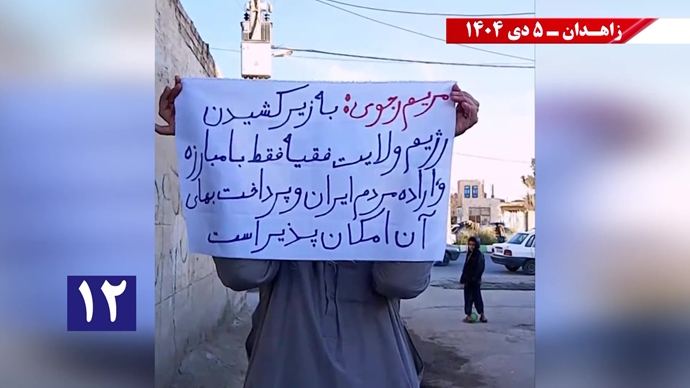 زاهدان – ۵ دی ۱۴۰۴
مریم رجوی: به زیر کشیدن
رژیم ولایت فقیه فقط با مبارزه
و اراده مردم ایران و پرداخت بهای
آن امکان پذیر است
۱۲